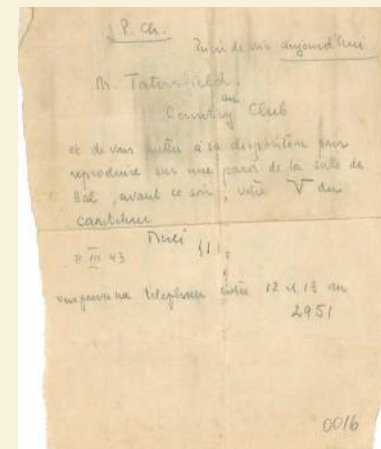 P. Ch.
Prière de voir aujourd'hui
Mr. Tatersfield,
au
Country Club
et de vous mettre à sa disposition pour
reproduire sur une paroi de la salle de
bal, avant ce soir, votre V du
Merci
III 43
téléphoner entre 12 et 13 au
2951
0016